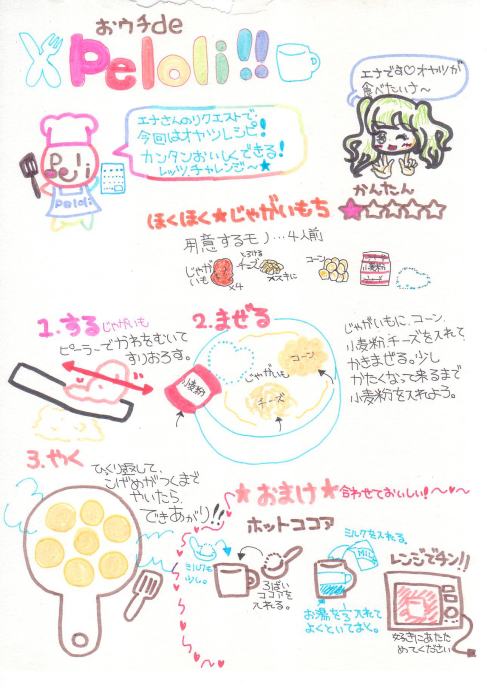 おウチde
Peloli!!
エナです♡オヤツが
食べたいナ〜
エナさんのリクエストで
今回はオヤツレシピ!
カンタンおいしくできる!
レッツ、チャレンジ〜★
Peloli
かんたん
★☆☆☆☆
ほくほく★じゃがいもち
用意するモノ…4人前
じゃが
いも
×4
とろける
チーズ
コーン
小麦粉
1.する じゃがいも
ピーラーでかわをむいて
すりおろす。
2.まぜる
小麦粉
じゃがいも
コーン
チーズ
じゃがいもに、コーン、
小麦粉、チーズを入れて
かきまぜる。少し
かたくなって来るまで
小麦粉を入れよう。
3.やく
ひっくり返して、
こげめがつくまで
やいたら、
できあがり!!
★おまけ★合わせておいしい!〜♥〜
ホットココア
ミルクも
少し。
3ばい
ココアを
入れる。
ミルクを入れる。
MILK
お湯を1/3入れて
よくといておく。
レンジでチン!!
好きにあたた
めてください